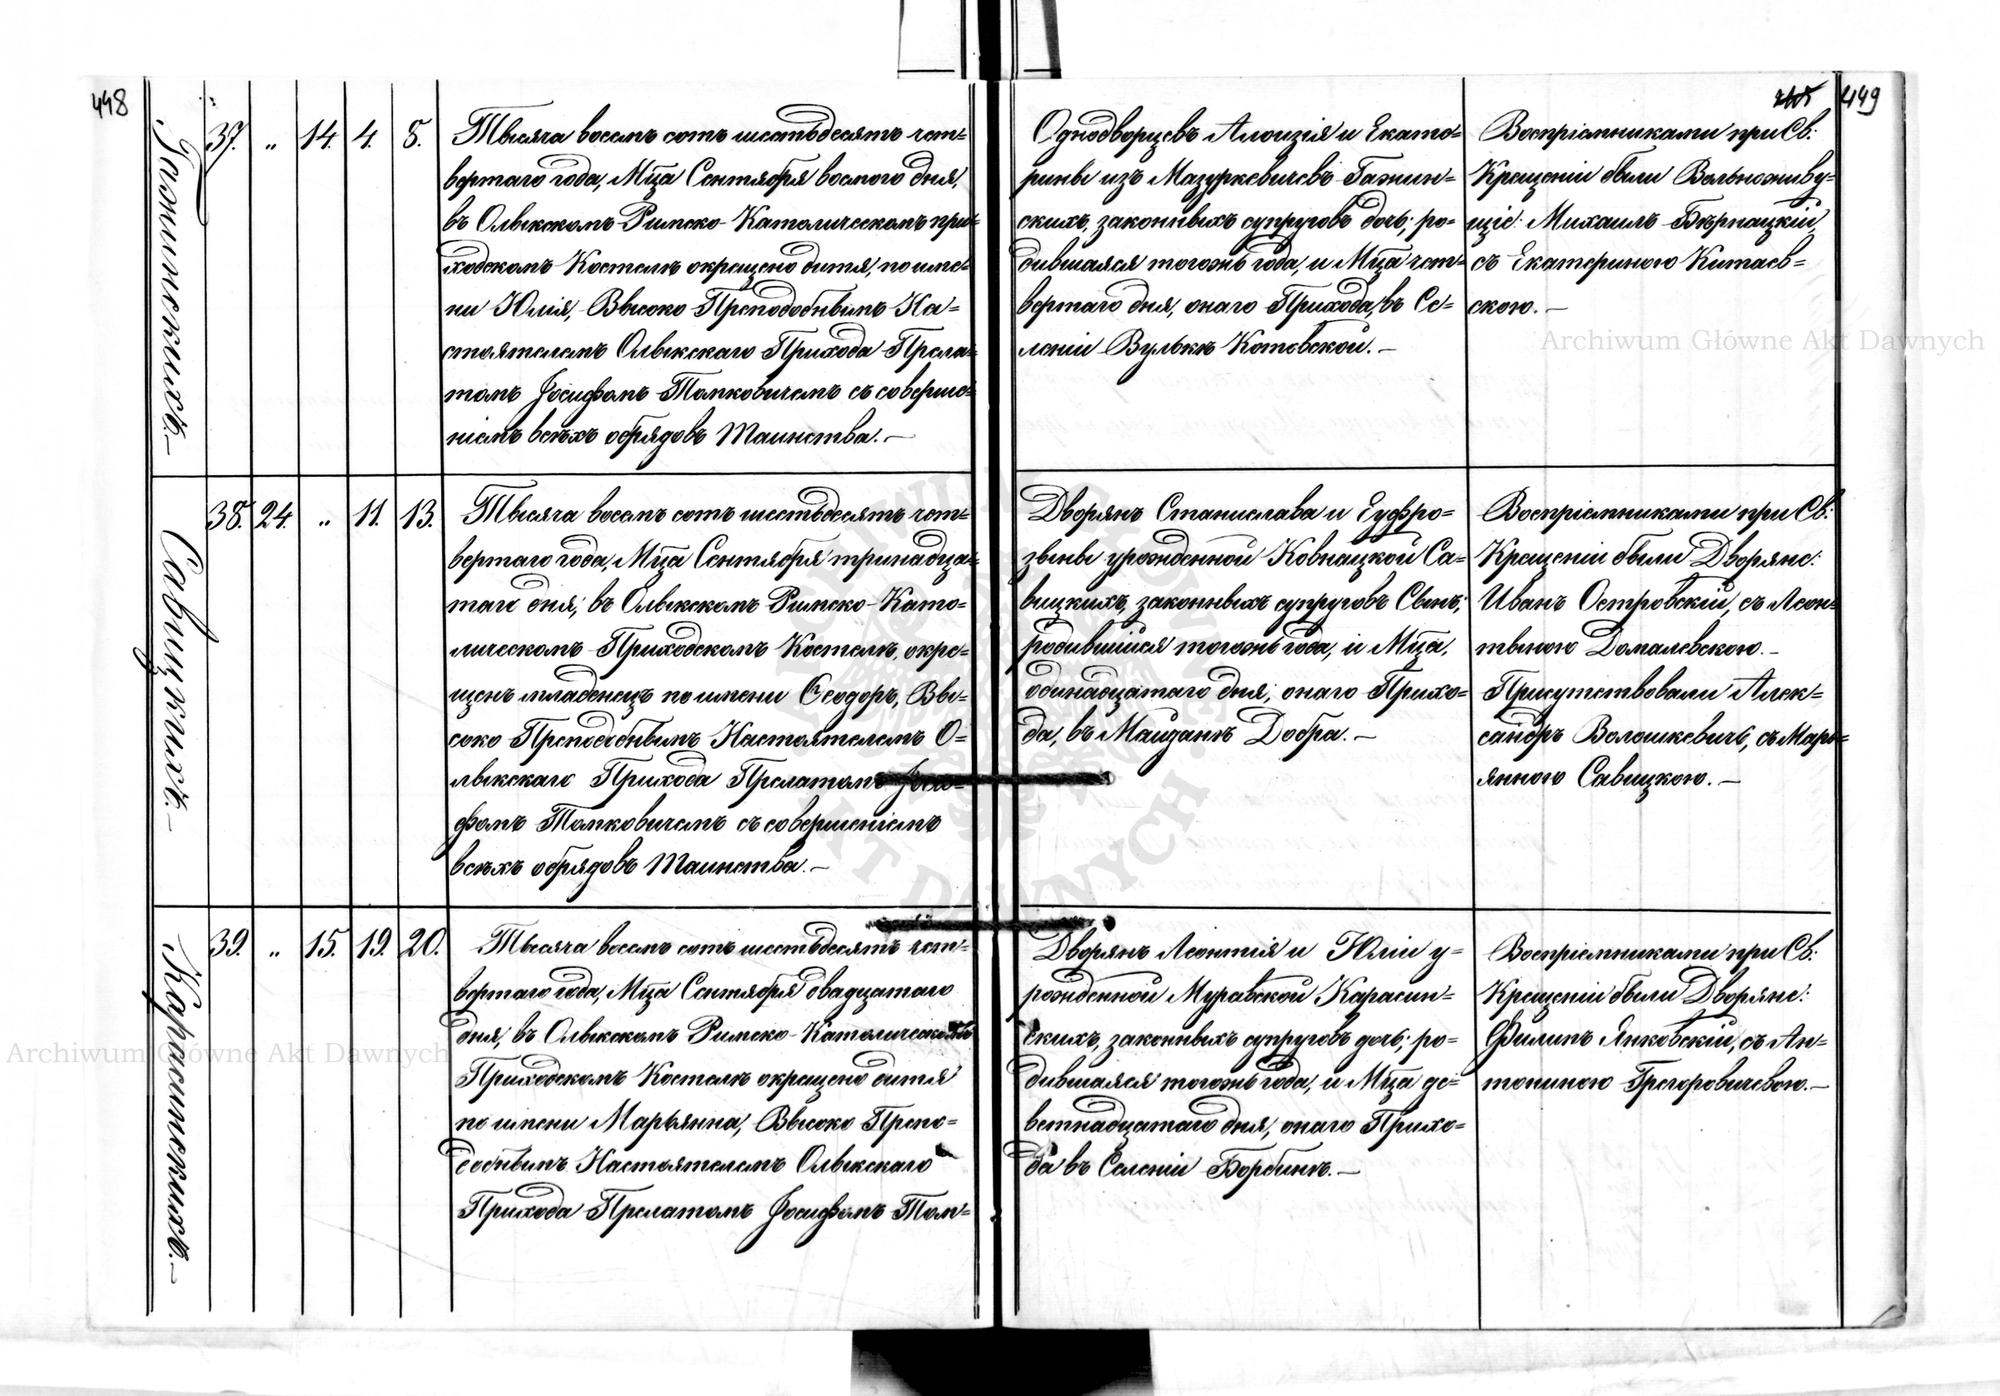 448
449
Гажинскихъ.—
37. „ 14. 4. 8.
Тысяча восемь сотъ шестьдесятъ чет=
вертаго года, Мца Сентября восмого дня,
въ Олыкскомъ Римско-Католическомъ при=
ходскомъ Костелѣ окрещено дитя, по име=
ни Юлія, Высоко Преподобнымъ На=
стоятелемъ Олыкскаго Прихода Прела=
томъ Іосифомъ Томковичемъ съ соверше=
ніемъ всѣхъ обрядовъ Таинства.—
Однодворцевъ Алоизія и Екате=
рины изъ Мазуркевичевъ Гажин=
скихъ, законныхъ супруговъ дочь; ро=
дившаяся тогожъ года, и Мца чет=
вертаго дня, онаго Прихода, въ Се=
леніи Вулькѣ Котовской.—
Воспріемниками при Св:
Крещеніи были Вольноживу=
щіе: Михаилъ Бѣрнацкій,
съ Екатериною Китаев=
скою.—
Савицкихъ.—
38. 24. „ 11. 13.
Тысяча восемь сотъ шестьдесятъ чет=
вертаго года, Мца Сентября тринадца=
таго дня; въ Олыкскомъ Римско-Като=
лическомъ Приходскомъ Костелѣ, окре=
щенъ младенецъ по имени Ѳеодоръ, Вы=
соко Преподобнымъ Настоятелемъ О=
лыкскаго Прихода Прелатомъ Іоси=
фомъ Томковичемъ съ совершеніемъ
всѣхъ обрядовъ Таинства.—
Дворянъ Станислава и Еуфро=
зыны урожденной Ковнацкой Са=
вицкихъ, законныхъ супруговъ Сынъ;
родившійся тогожъ года, и Мца,
одинадцатаго дня; онаго Прихо=
да, въ Майданѣ Добра.—
Воспріемниками при Св:
Крещеніи были Дворяне:
Иванъ Островскій, съ Леон=
тыною Домалевскою.—
Присутствовали Алек=
сандръ Волошкевичъ, съ Марь=
янною Савицкою.—
Карасинскихъ.—
39. „ 15. 19. 20.
Тысяча восемь сотъ шестьдесятъ чет=
вертаго года, Мца Сентября двадцатаго
дня, въ Олыкскомъ Римско-Католическомъ
Приходскомъ Костелѣ окрещено дитя
по имени Марьянна, Высоко Препо=
добнымъ Настоятелемъ Олыкскаго
Прихода Прелатомъ Іосифомъ Том=
Дворянъ Леонтія и Юліи у=
рожденной Муравской Карасин=
скихъ, законныхъ супруговъ дочь; ро=
дившаяся тогожъ года, и Мца де=
вятнадцатаго дня; онаго Прихо=
да въ Селеніи Борбинѣ.—
Воспріемниками при Св:
Крещеніи были Дворяне:
Филипъ Янковскій, съ Ан=
тониною Грегоровичевою.—
Archiwum Główne Akt Dawnych
Archiwum Główne Akt Dawnych